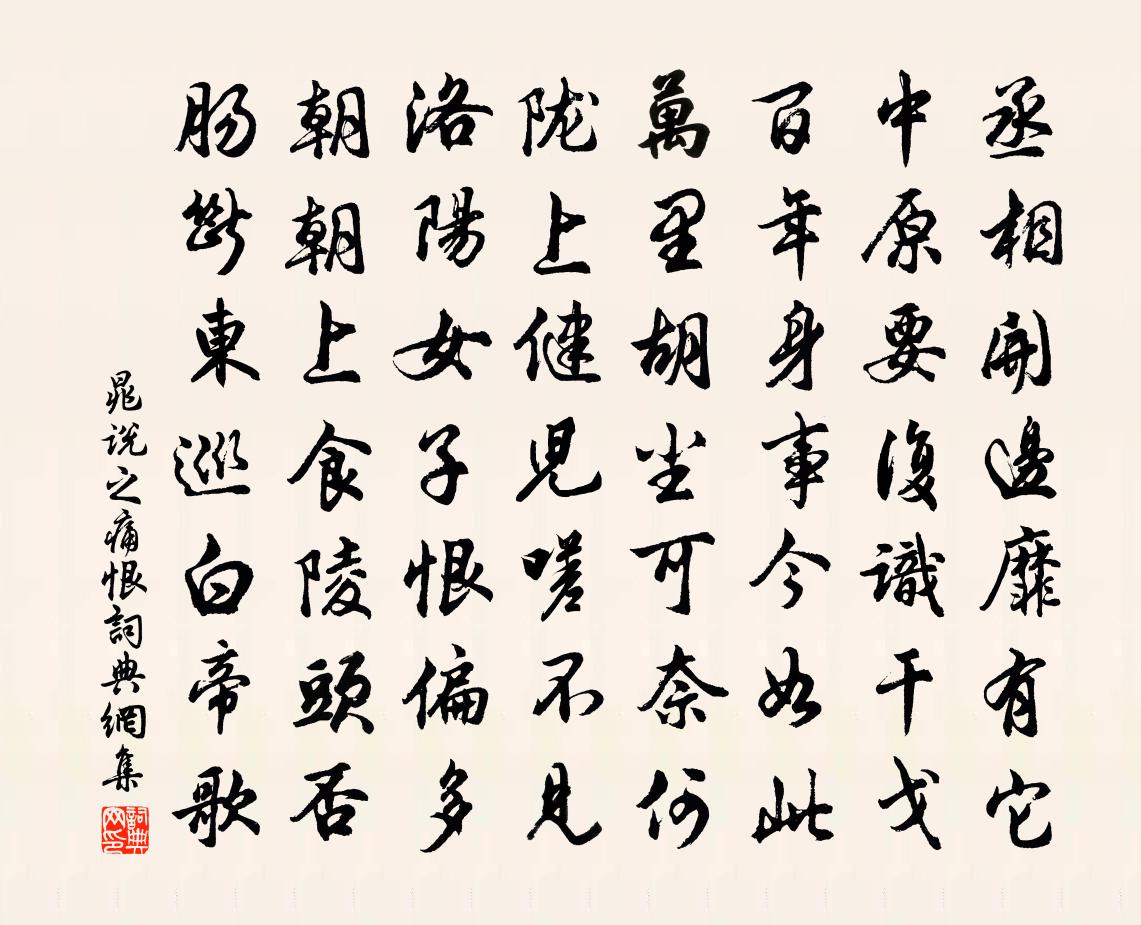 丞相開邊靡有它
中原要復識干戈
百年身事今如此
萬里胡塵可奈何
隴上健兒嗟不見
洛陽女子恨偏多
朝朝上食陵頭否
腸斷東巡白帝歌
晁說之痛恨詞典網集
詞典網印